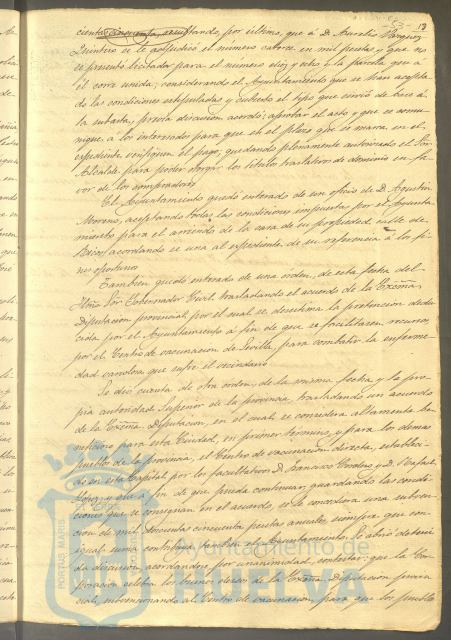 53- 13
cientas cincuenta, resultando, por último, que á D. Aurelio Vazquez
Quintero se le adjudicó el número catorce en mil pesetas, y que no
se presentó licitador para el número diez y ocho y la parcela que á
él corre unida; considerando el Ayuntamiento que se han acepta-
do las condiciones estipuladas y cubierto el tipo que sirvió de base á
la subasta, previa discusión acordó: aprobar el acto y que se comu-
nique á los interesados para que en el plazo que se marca en el
expediente verifiquen el pago; quedando plenamente autorizado el Sor
Alcalde para poder otorgar los títulos traslativos de dominio en fa-
vor de los compradores.
El Ayuntamiento quedó enterado de un oficio de D. Agustin
Moreno, aceptando todas las condiciones impuestas por el Ayunta-
miento para el arriendo de la casa de su propiedad, calle de
acordando se una al expediente de su referencia á los fi-
nes oportunos.
Tambien quedó enterado de una orden, de esta fecha del
Iltmo Sor Gobernador Civil trasladando el acuerdo de la Excma
Diputación provincial por el cual se desestima la pretension dedu-
cida por el Ayuntamiento á fin de que se facilitasen recursos
por el Centro de vacunacion de Sevilla, para combatir la enferme-
dad variolosa que sufre el vecindario.
Se dió cuenta de otra orden, de la misma fecha y la pro-
pia autoridad Superior de la provincia, trasladando un acuerdo
de la Excma Diputacion, en el cual se considera altamente be-
neficioso para esta Ciudad, en primer término, y para los demas
pueblos de la provincia, el Centro de vacunacion directa, estableci-
do en esta Capital por los facultativos D. Francisco Cordero y D. Rafael
Lopez, y que á fin de que pueda continuar, guardando las condi-
ciones que se consignan en el acuerdo, se le concediera una subven-
cion de mil doscientas cincuenta pesetas anuales siempre que con
igual suma contribuya tambien el Ayuntamiento. Se abrió deteni-
da discusion, acordandose por unanimidad, contestar: que la Cor-
poracion celebra los buenos deseos de la Excma Diputacion provin-
cial, subvencionando al Centro de vacunacion, para que los pueblos
PORTUS MARIS
Ayuntamiento de
HUELVA